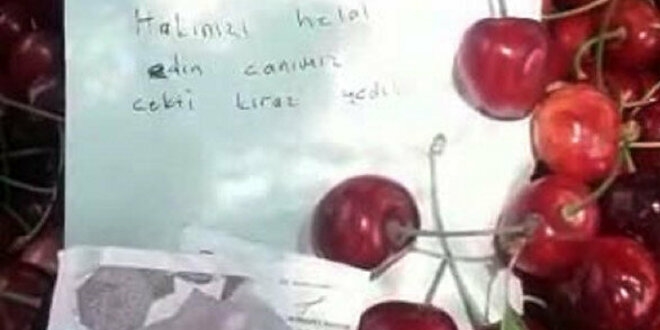 Hakınızı helal
edin canımız
çekti kiraz yedik